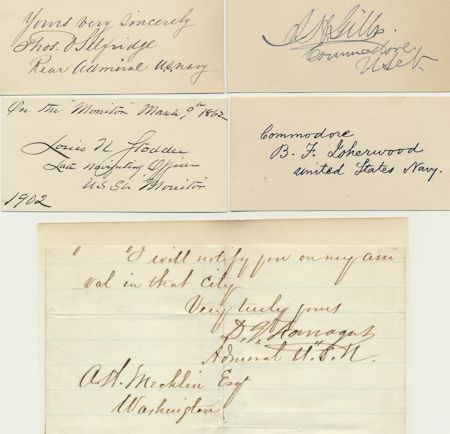 Yours very sincerely
Thos. O Selfridge
Rear Admiral U.S. Navy
Commodore
U.S.N.
On the "Monitor" March 9th 1862
Louis N. Stodder
Late Navigating Officer
U.S.S. "Monitor"
1902
Commodore
B. F. Isherwood
United States Navy.
" "I will notify you on my arri
val in that city
Very truly yours
D. G. Farragut
Admiral U.S.N.
A. H. Mechlin Esqr
Washington